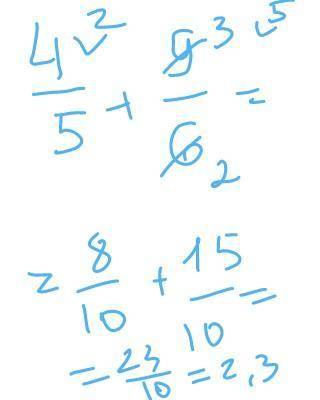 4/5 ² + 9/6 ³/₂ ⁵ =
= 8/10 + 15/10 =
= 23/10 = 2,3